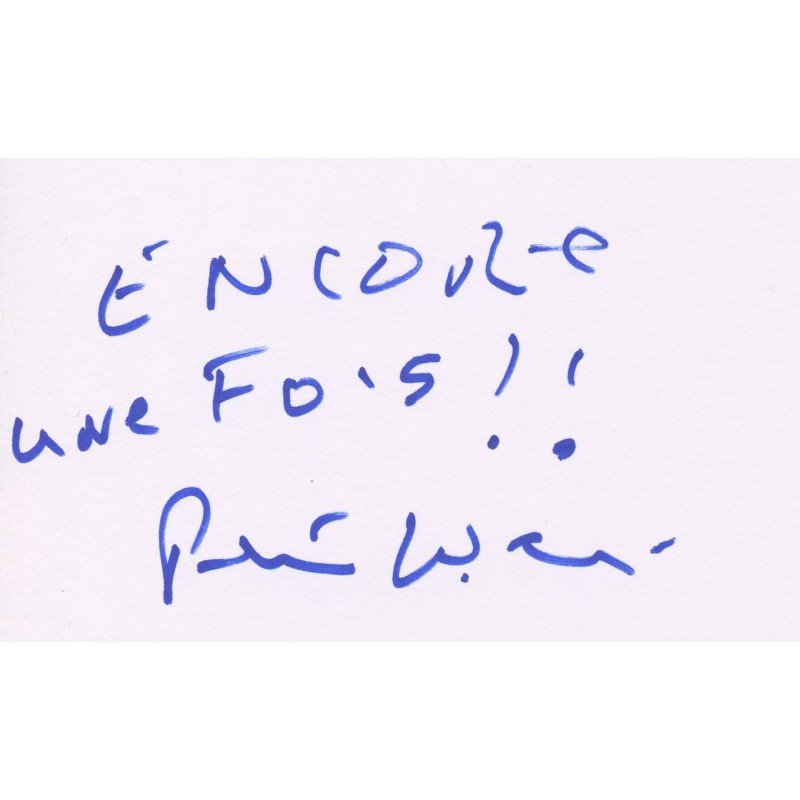 ENCORE
une FOiS!!